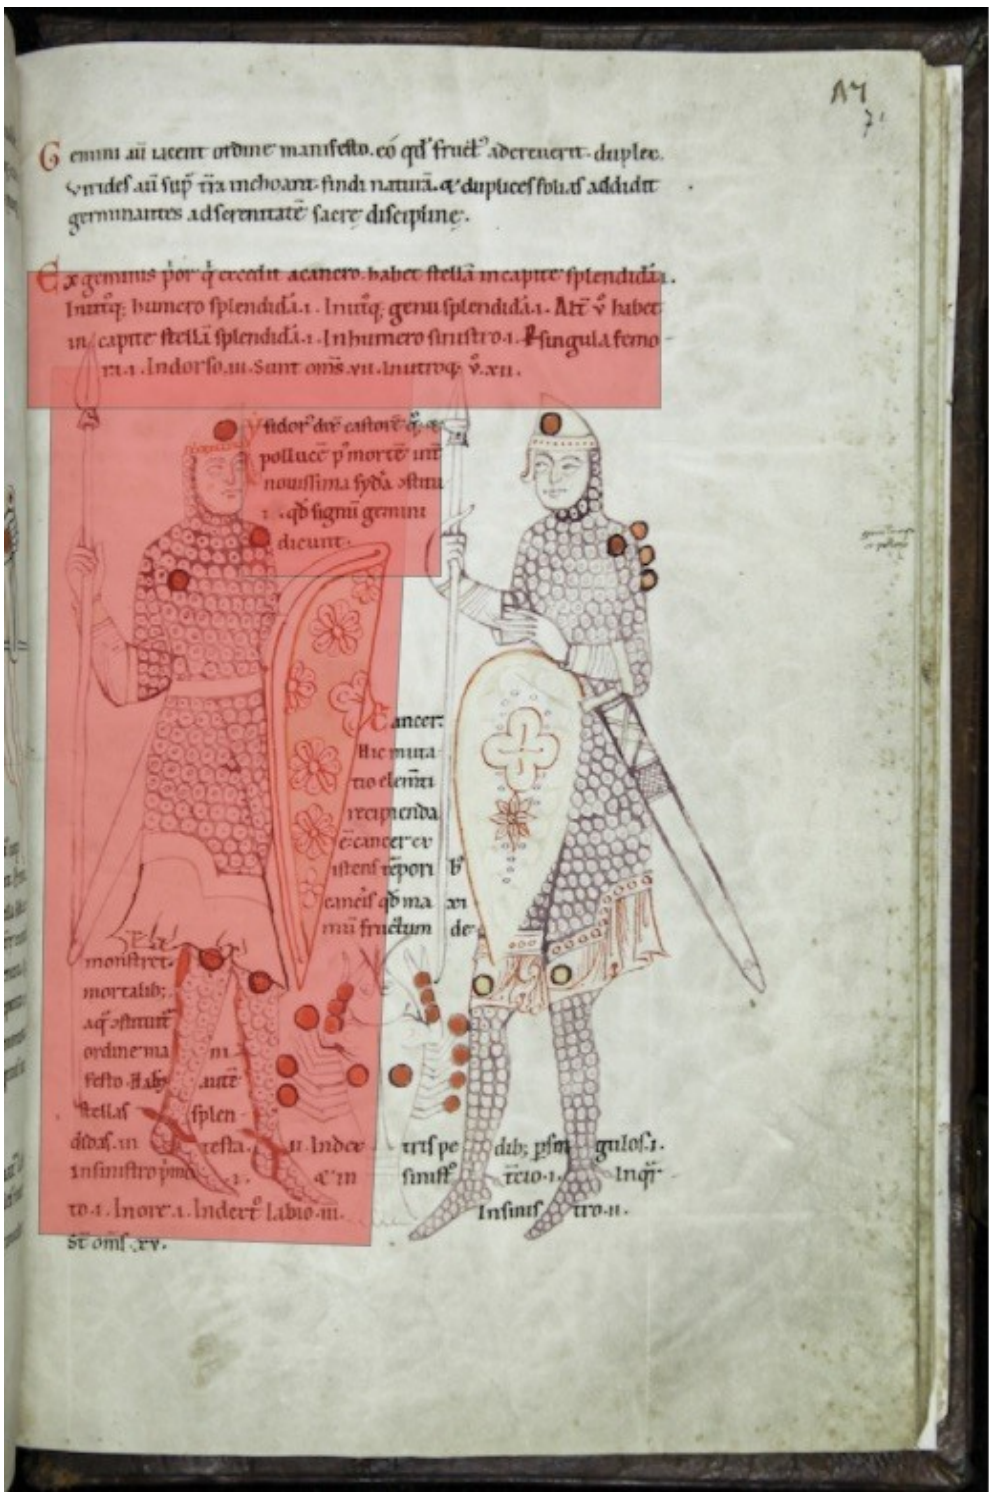 Gemini aū licent ordine manifesto. eó qd' fruct' adcreuerit. duplex.
Virides aū sup̄ t̄ra inchoant. findi naturā. & duplices folias addidit
germinantes ad serenitatē sacrę disciplinę.
Ex geminis p̓or q̓ excedit a canero. habet stellā in capite splendidā.i.
In utq; humero splendidā.i. In utq; genu splendidā.i. Alt̄ v̓ habet
in capite stellā splendidā.i. In humero sinistro.i. & singula femo
ra.i. In dorso.iii. Sunt oms̄.vii. In utroq; v̓.xii.
ysidor' dic̄ castorē q̓. &
pollucē p' mortē int̄
nouissima syd'a
qd signū gemini
dicunt.
Cancer.
Hic muta
tio elem̄ti
recipienda
ē. cancer ex
istens tēpori b'
caneis qd ma xi
mū fructum de
monstret.
mortalib;
aq̓
ordine ma ni
festo. Hab& autē
stellas splen
didas. in testa. ii. In dex tris pe dib; p̱ sin gulos.i.
In sinistro p̓mo .i. & in sinist' t̄cio.i. In q̓r
to.i. In ore.i. In dext̓o labio.iii. In sinis tro.ii.
St̄ oms̄.xv.